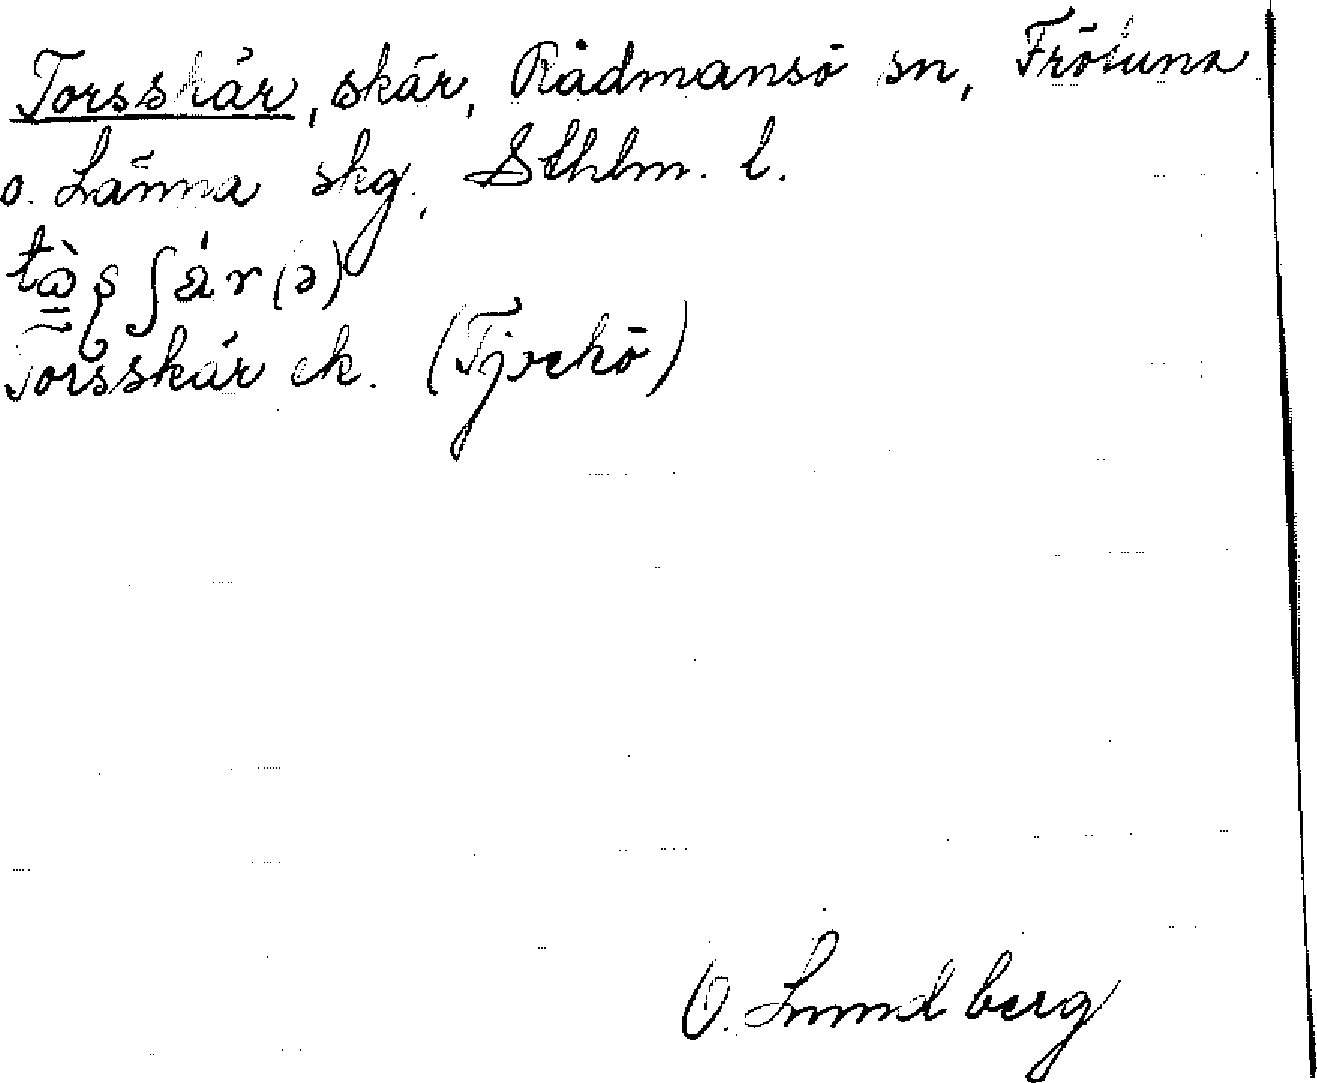 Torsskär, skär, Rådmansö sn, Frötuna
o. Länna skg., Sthlm. l.
Torsskär ek. (Tjockö)
O. Lundberg